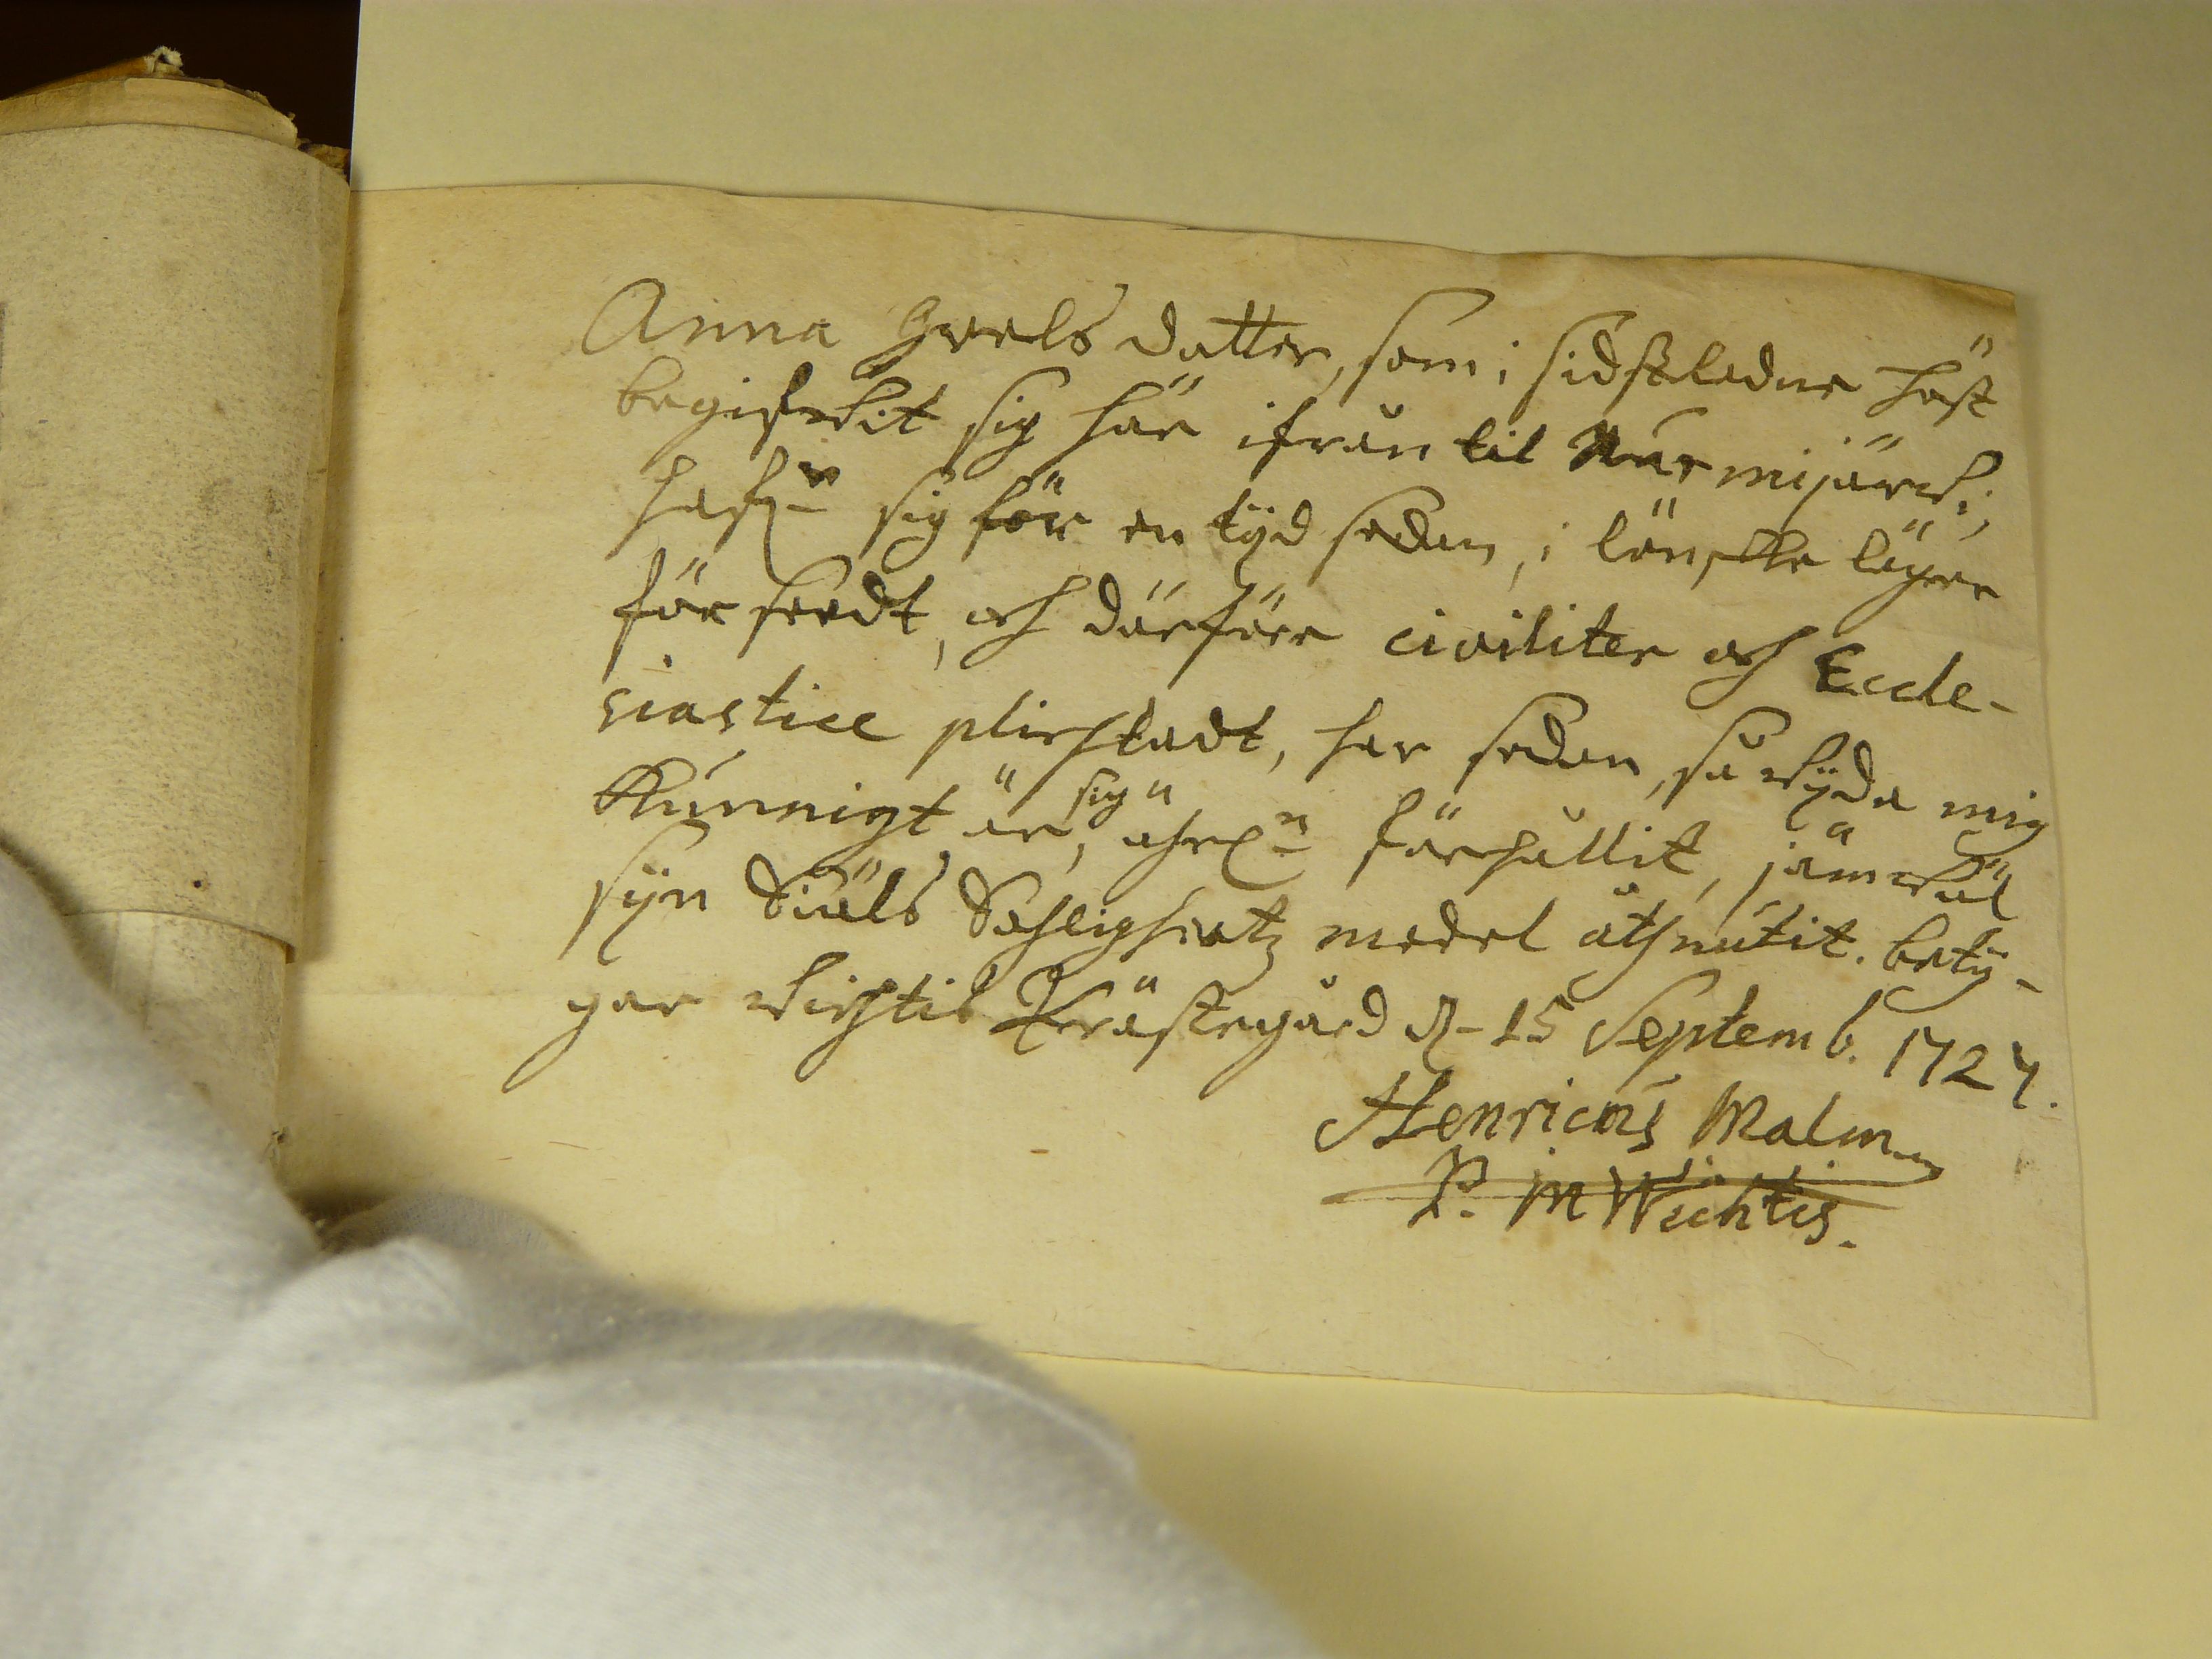 Anna Grels dotter, som i sidstledne höst
begifwit sig här ifrån til Nurmijärwi,
hafr sig för en tijd sedan, i lönske läger
försedt, och därföre civiliter och Eccle-
siastice plichtadt, har sedan, så wijda mig
kunnigt är, sig ährln förhållit, jämwäl
sijn Siäls Sahligheetz medel åthnutit. betÿ-
gar Wichtis Prästegård dn 15 Septemb. 1727.
Henricus Malm
P. in Wichtis.